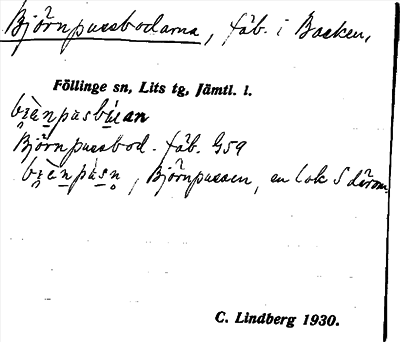 Björnpussbodarna, fäb. i Backen,
Föllinge sn, Lits tg, Jämtl. l.
Björnpussbod. fäb. G59
Björnpussen, en lok S därom.
C. Lindberg 1930.